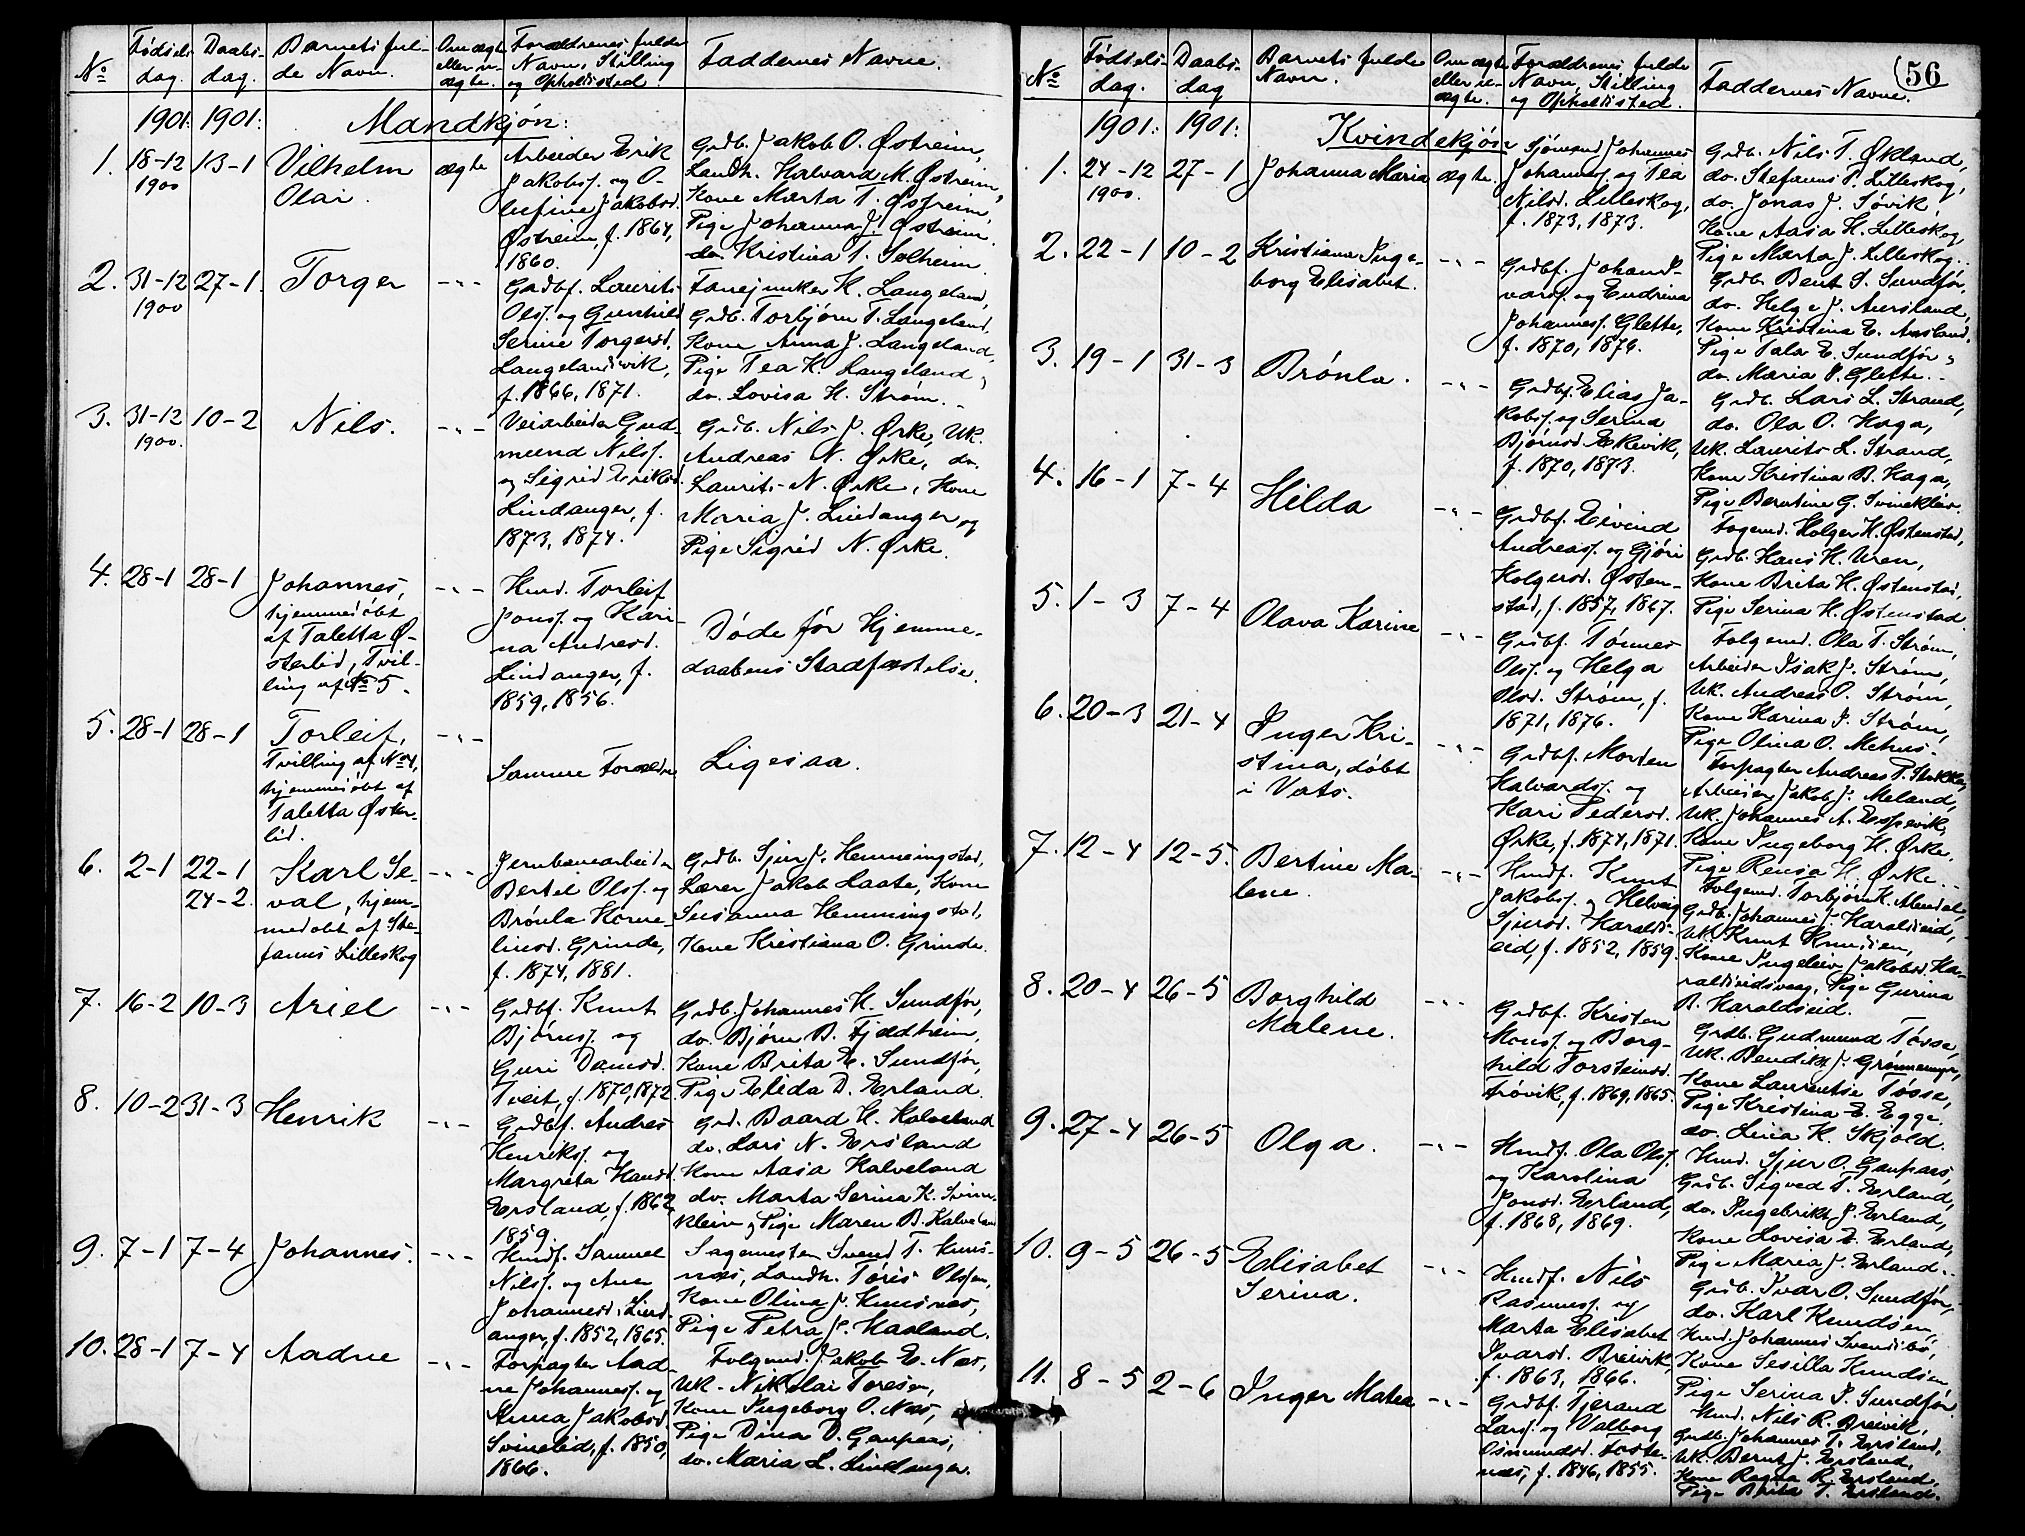 No
Fødsels-
dag.
Daabs-
dag.
Barnets ful-
de Navn.
Om ægte
eller u-
ægte.
Forældrenes fulde
Navn, Stilling
og Opholdssted.
Faddernes Navne.
1901. 1901.
Mandkjøn:
1. 18-12 1900
13-1
Vilhelm
Olai.
ægte
Arbeider Erik
Jakobs. og O-
lufine Jakobsd.
Østreim, f. 1864,
1860.
Grdb. Jakob O. Østreim,
Landh. Halvard M. Østreim,
Kone Marta T. Østreim,
Pige Johanna J. Østreim.
do. Kristina T. Solheim.
2. 31-12 1900
27-1
Torger
-"-
Grdbf. Laurits
Ols. og Gunhild
Serine Torgersd.
Langelandsvik,
f. 1866, 1871.
Fanejunker K. Langeland,
Grdb. Torbjørn T. Langeland,
Kone Anna J. Langeland,
Pige Tea K. Langeland,
do. Lovisa H. Strøm.
3. 31-12 1900.
10-2
Nils.
-"-
Veiarbeider Gud-
mund Nils.
og Sigrid Eriksd.
Lindanger, f.
1873, 1874.
Grdb. Nils J. Ørke, Uk.
Andreas N. Ørke, do.
Laurits N. Ørke, Kone
Maria J. Lindanger og
Pige Sigrid N. Ørke.
4. 28-1
28-1
Johannes,
hjemmedøbt
af Taletta Ø-
sterlid, Tvil-
ling af No 5.
-"-
Hmd. Torleif
Jons. og Kari-
na Andresd.
Lindanger, f.
1859, 1856.
Døde før Hjemme-
daabens Stadfæstelse.
5. 28-1
28-1
Torleif,
Tvilling af No 4,
hjemmedøbt af
Taletta Øster-
lid.
-"-
Samme Forældre
Ligesaa.
6. 2-1
22-1
24-2.
Karl Se-
val, hjem-
medøbt af Ste-
fanus Lilleskog
-"-
Jernbanearbeider
Bertel Ols. og
Brønla Korne-
liusd. Grinde,
f. 1874, 1881.
Grdb. Sjur J. Hemmingstad,
Lærer Jakob Laate, Kone
Susanna Hemmingstad,
Kone Kristiana O. Grinde.
7. 16-2
10-3
Ariel
-"-
Grdbf. Knut
Bjørns. og
Guri Danesd.
Tveit, f. 1870, 1872
Grdb. Johannes K. Sundfør,
do. Bjørn B. Fjeldheim,
Kone Brita E. Sundfør,
Pige Elida D. Erland.
8. 10-2
31-3
Henrik
-"-
Grdbf. Andres
Henriks. og
Margreta Hansd.
Ersland, f. 1862
1859.
Grd. Baard H. Kalveland
do. Lars N. Ersland
Kone Aasa Kalveland
do. Marta Serina K. Svine-
kleiv, Pige Maren B. Kalveland
9. 7-1
7-4
Johannes.
-"-
Hmdf. Samuel
Nils. og Ane
Johannesd. Lind-
anger, f. 1852, 1865.
Sagemester Svend T. Knuds-
næs, Landh. Tøris Olsen,
Kone Olina J. Knudsnæs,
Pige Petra J. Hasland.
10. 28-1
7-4
Aadne
-"-
Forpagter Aad-
ne Johannes. og
Anna Jakobsd.
Svinelid, f. 1850,
1866.
Folgemd. Jakob E. Næs,
Uk. Nikolai Toresen,
Kone Ingeborg O. Næs,
Pige Dina D. Gaupaas,
do. Maria L. Lindanger.
56
No
Fødsels-
dag.
Daabs-
dag
Barnets fulde
Navn.
Om ægte
eller u-
ægte.
Forældrenes fulde
Navn, Stilling
og Opholdssted.
Faddernes Navne.
1901. 1901.
Kvindekjøn
1. 24-12 1900.
27-1
Johanna Maria
ægte.
Sjømand Johannes
Johannes. og Tea
Nilsd. Lilleskog,
f. 1873, 1873.
Grdb. Nils T. Økland,
do. Stefanus P. Lilleskog,
do. Jonas J. Søvik,
Kone Aasa H. Lilleskog
Pige Marta J. Lilleskog.
2. 22-1
10-2
Kristiane Inge-
borg Elisabet.
-"-
Grdbf. Johan I-
vars. og Endrina
Johannesd. Glette,
f. 1870, 1876.
Grdb. Bent S. Sundfør,
do. Helge J. Aursland,
Kone Kristina E. Aasland.
Pige Tala E. Sundfør,
do. Maria P. Glette.
3. 19-1
31-3
Brønla.
-"-
Grdbf. Elias Ja-
kobs. og Serina
Bjørnsd. Ekevik,
f. 1870, 1873.
Grdb. Lars L. Strand,
do. Ola O. Haga,
Uk. Laurits L. Strand,
Kone Kristina B. Haga,
Pige Berntine G. Svinekleiv.
4. 16-1
7-4
Hilda
-"-
Grdbf. Eivind
Andreass. og Gjøri
Holgersd. Østen-
stad, f. 1857, 1867.
Fogemd. Holger K. Østenstad,
Grdb. Hans K. Uren,
Kone Brita H. Østenstad,
Pige Serina K. Østenstad.
5. 1-3
7-4
Olava Karine
-"-
Grdbf. Tønnes
Ols. og Helga
Olsd. Strøm, f.
1871, 1876.
Folgemd. Ola T. Strøm,
Arbeider Isak J. Strøm,
Uk. Andreas O. Strøm,
Kone Karina J. Strøm,
Pige Olina O. Mehus.
6. 20-3
21-4
Inger Kri-
stina, døbt
i Vats.
-"-
Grdbf. Morten
Halvards. og
Kari Pedersd.
Ørke, f. 1874, 1871.
Forpagter Andreas P. Stokka,
Arbeider Jakob J. Meland,
Uk. Johannes A. Espevik,
Kone Ingeborg H. Ørke,
Pige Rensa H. Ørke.
7. 12-4
12-5.
Bertine Ma-
lene.
-"-
Hmdf. Knut
Jakobs. og Helvig
Sjursd. Haralds-
eid, f. 1852, 1859.
Folgemd. Torbjørn K. Alendal,
Grdb. Johannes J. Haraldseid,
Uk. Knut Knudsen,
Kone Ingeleiv Jakobsd. Ha-
raldseidsvaag, Pige Gurina
B. Haraldseid.
8. 20-4
26-5
Borghild
Malene.
-"-
Grdbf. Kristen
Mons. og Borg-
hild Torsteinsd.
Frøvik, f. 1869, 1865.
Grdb. Gudmund Tøsse,
Uk. Bendik J. Grønnemyr,
Kone Laurentse Tøsse,
Pige Kristina E. Egge.
do. Lina K. Skjold.
9. 27-4
26-5
Olga.
-"-
Hmdf. Ola Ols.
og Karolina
Jonsd. Erland,
f. 1868, 1869.
Hmd. Sjur O. Gaupaas,
Grdb. Sigved T. Erland,
do. Ingebrikt J. Erland,
Kone Lovisa E. Erland,
Pige Maria J. Erland.
10. 9-5
26-5
Elisabet
Serina.
-"-
Hmdf. Nils
Rasmuss. og
Marta Elisabet
Ivarsd. Breivik,
f. 1863, 1866.
Grdb. Ivar O. Sundfør,
do. Karl Knudsen,
Hmd. Johannes Svendsbø,
Kone Sesilla Knudsen
Pige Serina J. Sundfør.
Hmd. Nils R. Breivik,
11. 8-5
2-6
Inger Malea
-"-
Grdbf. Tjerand
Lars. og Valborg
Osmundsd. Toste-
næs, f. 1846, 1855.
Grdb. Johannes T. Ersland,
Uk. Bernt J. Ersland,
Kone Ragna R. Ersland,
Pige Brita T. Ersland.